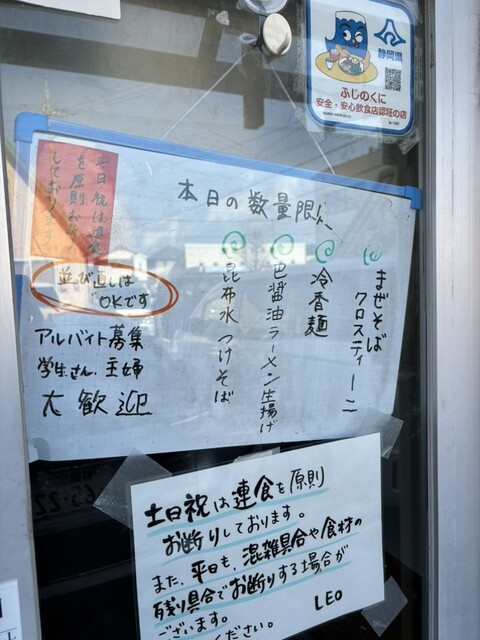 静岡県
ふじのくに
安全・安心飲食店認証の店
本日の数量限定
まぜそば
クロスティーニ
冷香麺
醤油ラーメン生揚げ
昆布水つけそば
土日祝は連食
を原則お断り
しております
並び直しは
OKです
アルバイト募集
学生さん、主婦
大歓迎
土日祝は連食を原則
お断りしております。
また、平日も、混雑具合や食材の
残り具合でお断りする場合が
ございます。
ください。
LEO